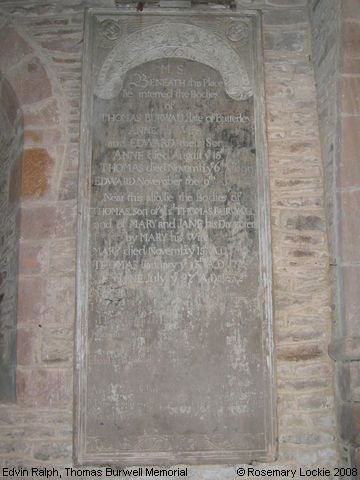 M S
BENEATH this Place
lie interred the Bodies
of
THOMAS BURWALL, late of Butterley
ANNE his Wife
and EDWARD their Son
ANNE died August
THOMAS died November
EDWARD November the
Near this also lie the Bodies of
THOMAS Son of THOMAS BURWALL
and of MARY and JANE his Daughters
by MARY his Wife
MARY died November 15 A.D.
THOMAS January
JANE July A.D.
Edvin Ralph, Thomas Burwell Memorial
© Rosemary Lockie 2008